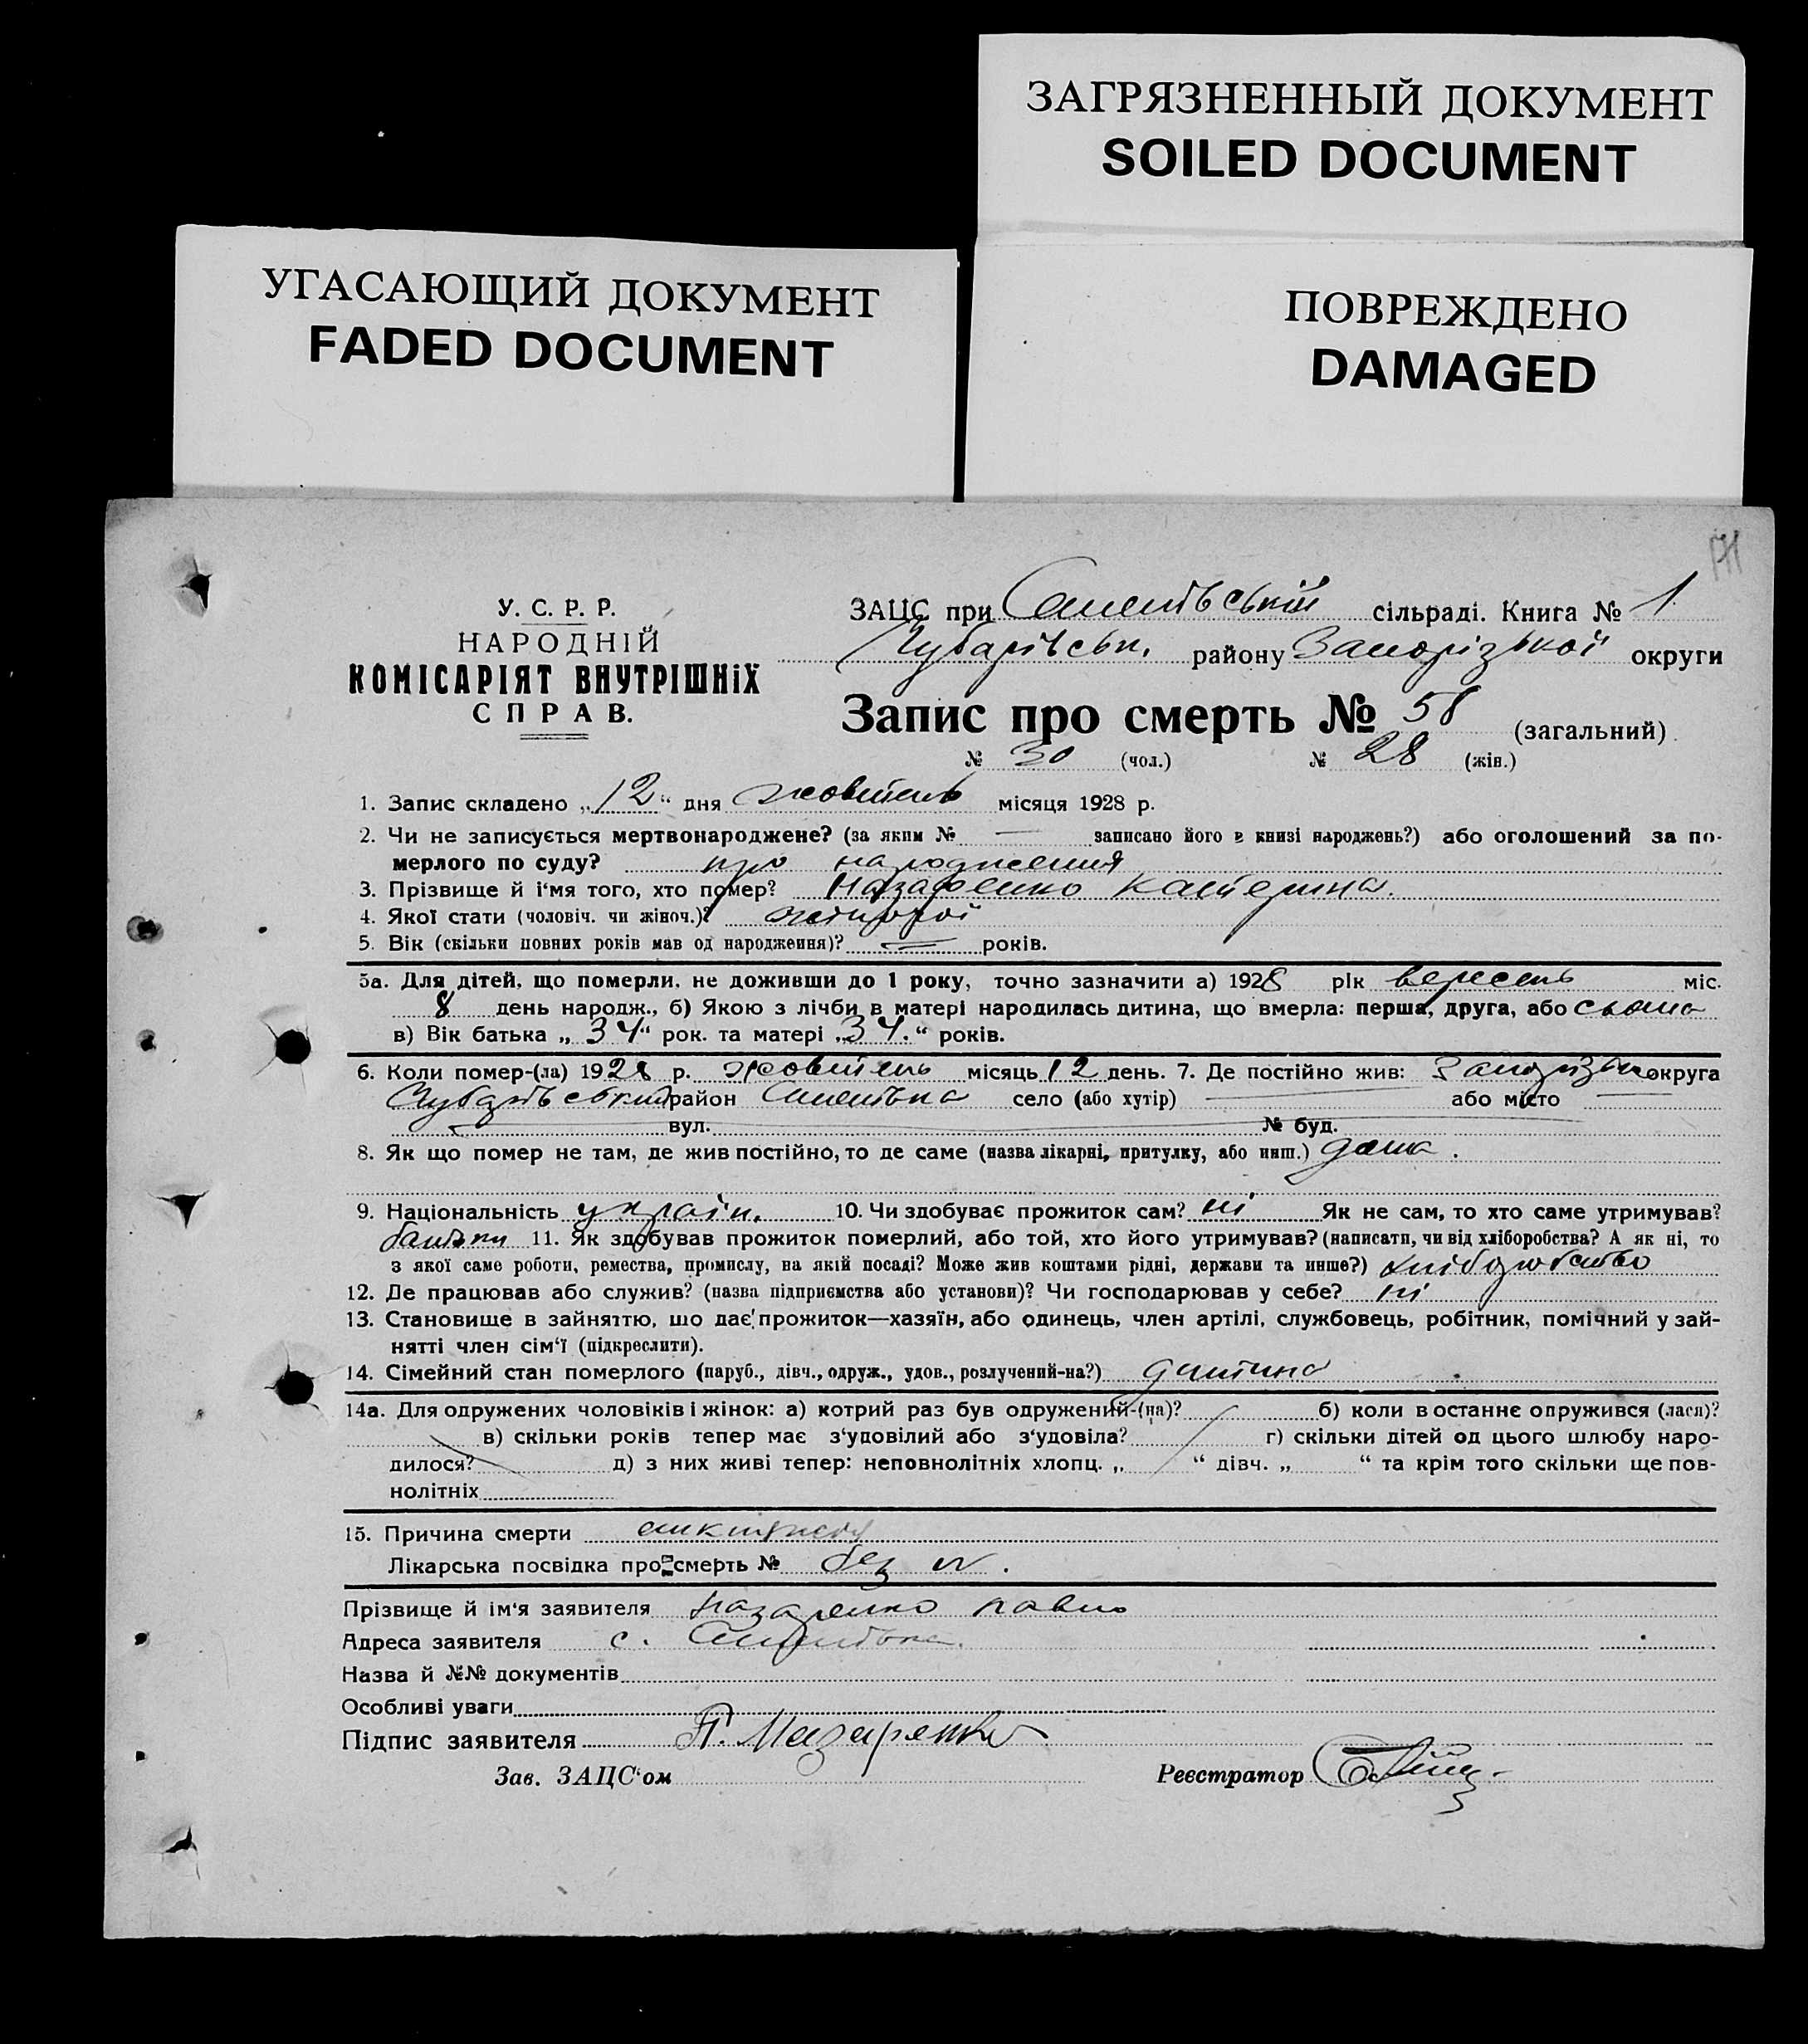 ЗАГРЯЗНЕННЫЙ ДОКУМЕНТ
SOILED DOCUMENT
УГАСАЮЩИЙ ДОКУМЕНТ
FADED DOCUMENT
ПОВРЕЖДЕНО
DAMAGED
У. С. Р. Р.
НАРОДНІЙ
КОМІСАРІЯТ ВНУТРІШНіХ
СПРАВ.
ЗАЦС при сільраді. Книга № 1
Чубарівськ. району Запорізької округи
Запис про смерть № 58 (загальний)
№ 30 (чол.) № 28 (жін.)
1. Запис складено „12“ дня жовтень місяця 1928 р.
2. Чи не записується мертвонароджене? (за яким № — записано його в книзі народжень?) або оголошений за по-
мерлого по суду? про народження
3. Прізвище й і'мя того, хто помер? Назаренко Катерина.
4. Якої стати (чоловіч. чи жіноч.)?
5. Вік (скільки повних років мав од народження)? — років.
5а. Для дітей, що померли, не доживши до 1 року, точно зазначити а) 1928 рік вересень міс.
8 день народж., б) Якою з лічби в матері народилась дитина, що вмерла: перша, друга, або сьома
в) Вік батька „34“ рок. та матері „34.“ років.
6. Коли помер-(ла) 1928 р. жовтень місяць 12 день. 7. Де постійно жив: Запорізьк округа
Чубарівський район село (або хутір) — або місто —
вул. № буд.
8. Як що помер не там, де жив постійно, то де саме (назва лікарні, притулку, або инш.) дома.
9. Національність україн. 10. Чи здобуває прожиток сам? ні Як не сам, то хто саме утримував?
батьки 11. Як здобував прожиток померлий, або той, хто його утримував? (написати, чи від хліборобства? А як ні, то
з якої саме роботи, ремества, промислу, на якій посаді? Може жив коштами рідні, держави та инше?) хліборобство
12. Де працював або служив? (назва підприємства або установи)? Чи господарював у себе? ні
13. Становище в зайняттю, що дає прожиток—хазяїн, або одинець, член артілі, службовець, робітник, помічний у зай-
нятті член сім'ї (підкреслити).
14. Сімейний стан померлого (паруб., дівч., одруж., удов., розлучений-на?) дитина
14а. Для одружених чоловіків і жінок: а) котрий раз був одружений-(на)? б) коли востаннє одружився (лася)?
в) скільки років тепер має з'удовілий або з'удовіла? г) скільки дітей од цього шлюбу наро-
дилося? д) з них живі тепер: неповнолітніх хлопц. „ “ дівч. „ “ та крім того скільки ще пов-
нолітніх
15. Причина смерти
Лікарська посвідка про смерть № без №.
Прізвище й ім'я заявителя Назаренко Павло
Адреса заявителя с.
Назва й №№ документів
Особливі уваги
Підпис заявителя П. Назаренко
Зав. ЗАЦС'ом Реєстратор